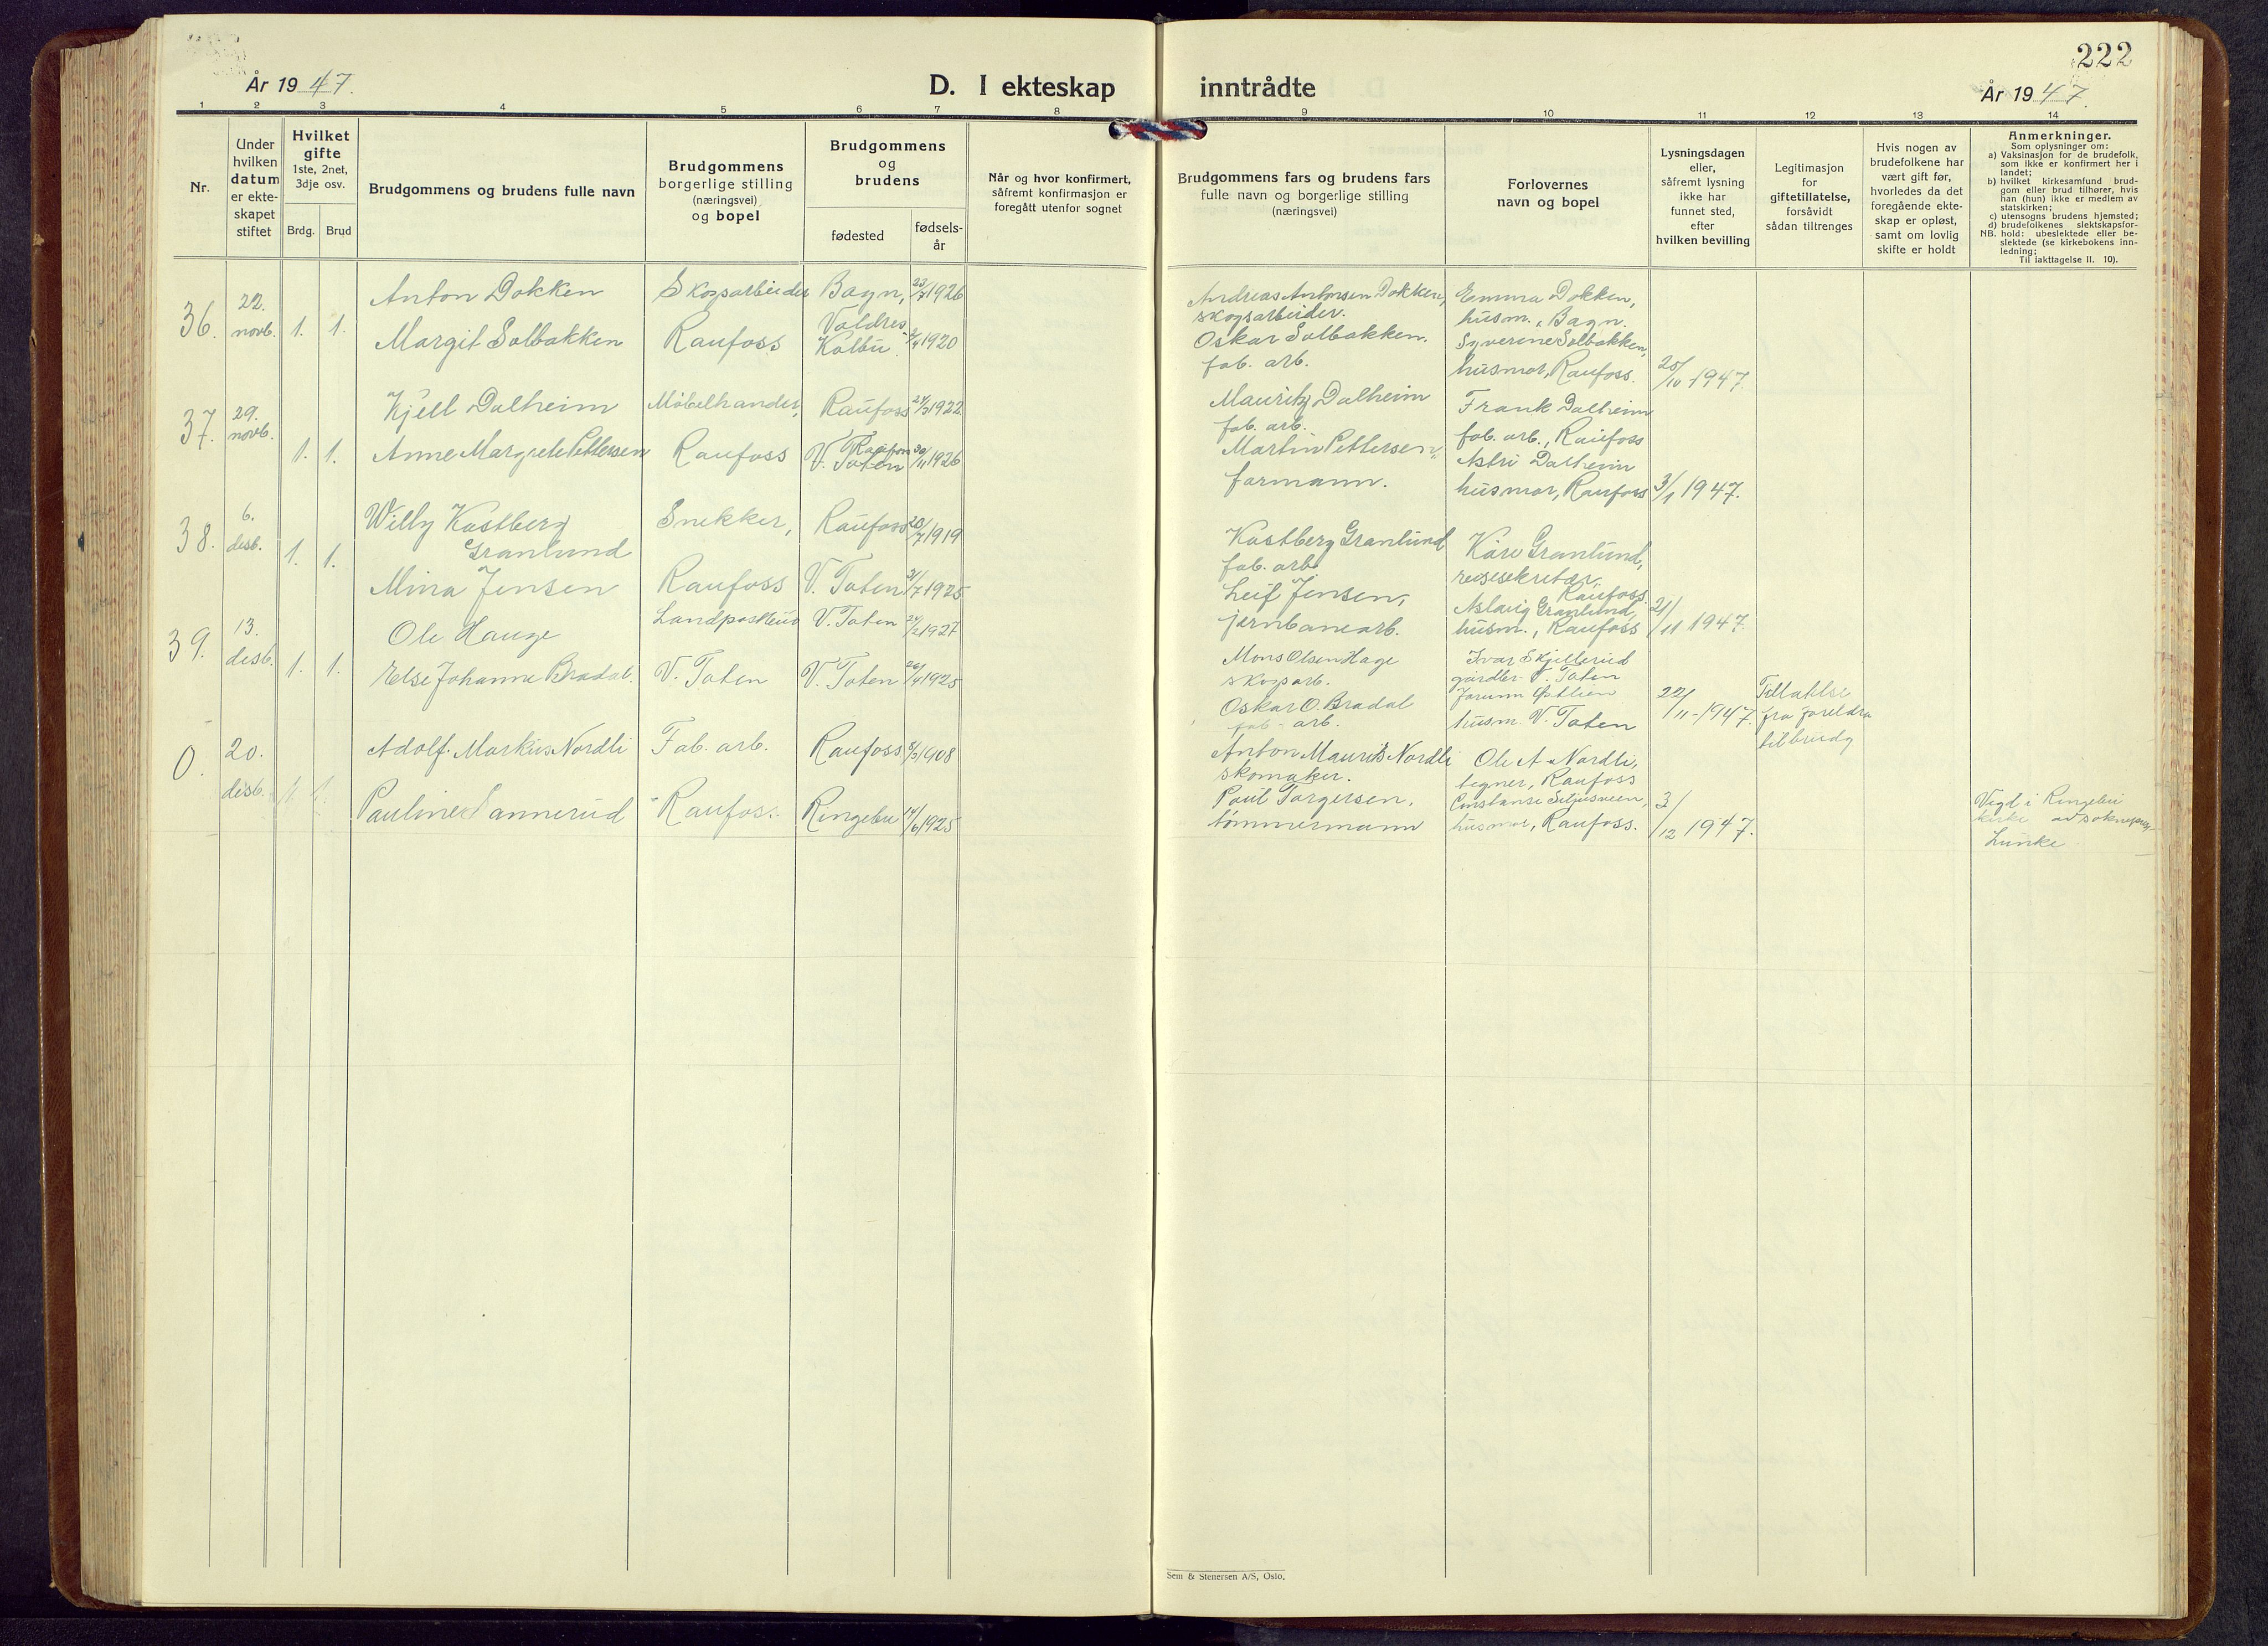 222
År 1947.
D. I ekteskap inntrådte
År 1947.
1 2 3 4 5 6 7 8 9 10 11 12 13 14
Nr.
Under
hvilken
datum
er ekte-
skapet
stiftet
Hvilket
gifte
1ste, 2net,
3dje osv.
Brdg. Brud
Brudgommens og brudens fulle navn
Brudgommens
borgerlige stilling
(næringsvei)
og bopel
Brudgommens
og
brudens
fødested
fødsels-
år
Når og hvor konfirmert,
såfremt konfirmasjon er
foregått utenfor sognet
Brudgommens fars og brudens fars
fulle navn og borgerlige stilling
(næringsvei)
Forlovernes
navn og bopel
Lysningsdagen
eller,
såfremt lysning
ikke har
funnet sted,
efter
hvilken bevilling
Legitimasjon
for
giftetillatelse,
forsåvidt
sådan tiltrenges
Hvis nogen av
brudefolkene har
vært gift før,
hvorledes da det
foregående ekte-
skap er opløst,
samt om lovlig
skifte er holdt
Anmerkninger.
Som oplysninger om:
a) Vaksinasjon for de brudefolk,
som ikke er konfirmert her i
landet;
b) hvilket kirkesamfund brud-
gom eller brud tilhører, hvis
han (hun) ikke er medlem av
statskirken;
c) utensogns brudens hjemsted;
d) brudefolkenes slektskapsfor-
NB. hold: ubeslektede eller be-
slektede (se kirkebokens inn-
ledning;
Til iakttagelse II. 10).
36.
22.
novb.
1. 1.
Anton Dokken
Margit Solbakken
Skogsarbeider
Raufoss
Bagn,
Valdres
Kolbu
23/7 1926
1920
Andreas Antonsen Dokken,
skogsarbeider.
Oskar Solbakken.
fab. arb.
Emma Dokken,
husm., Bagn.
Syverine Solbakken,
husmor, Raufoss.
25/10 1947
37.
29.
novb.
1. 1.
Kjell Dalheim
Anne Margrete Pettersen
Møbelhandler,
Raufoss
Raufoss
Raufoss
V. Toten
1922
30/11 1926
Mauritz Dalheim
fab. arb.
Martin Pettersen,
formann.
Frank Dalheim
fab. arb., Raufoss
Astri Dalheim
husmor, Raufoss
3/1 1947.
38.
6.
desb.
1. 1.
Willy Kastberg
Granlund
Mina Jensen
Snekker,
Raufoss
Raufoss
V. Toten
20/7 1919
31/7 1925
Kastberg Granlund
fab. arb.
Leif Jensen,
jernbanearb.
Kåre Granlund,
reisesekretær,
Raufoss.
Aslaug Granlund,
husm., Raufoss
21/11 1947.
39.
13.
desb.
1. 1.
Ole Hauge
Else Johanne Bradal.
Landpostbud
V. Toten
V. Toten
V. Toten
24/2 1927
26/4 1925
Mons Olsen Hage
skogsarb.
Oskar O. Bradal
fab. arb.
Ivar Skjellerud
gårdbr. V. Toten
Jorunn Østlien
husm. V. Toten
22/11-1947.
Tillatelse
fra foreldre
til brudg
0.
20.
desb.
1. 1.
Adolf Markus Nordli
Pauline Sannerud
Fab. arb.
Raufoss
Raufoss
Ringebu
8/3 1908
14/6 1925
Anton Maurits Nordli
skomaker.
Paul Torgersen,
tømmermann
Ole A Nordli,
tegner, Raufoss
Constanse
husmor, Raufoss.
3/12 1947.
Vigd i Ringebu
kirke av sokneprest
Lunke
Sem & Stenersen A/S, Oslo.